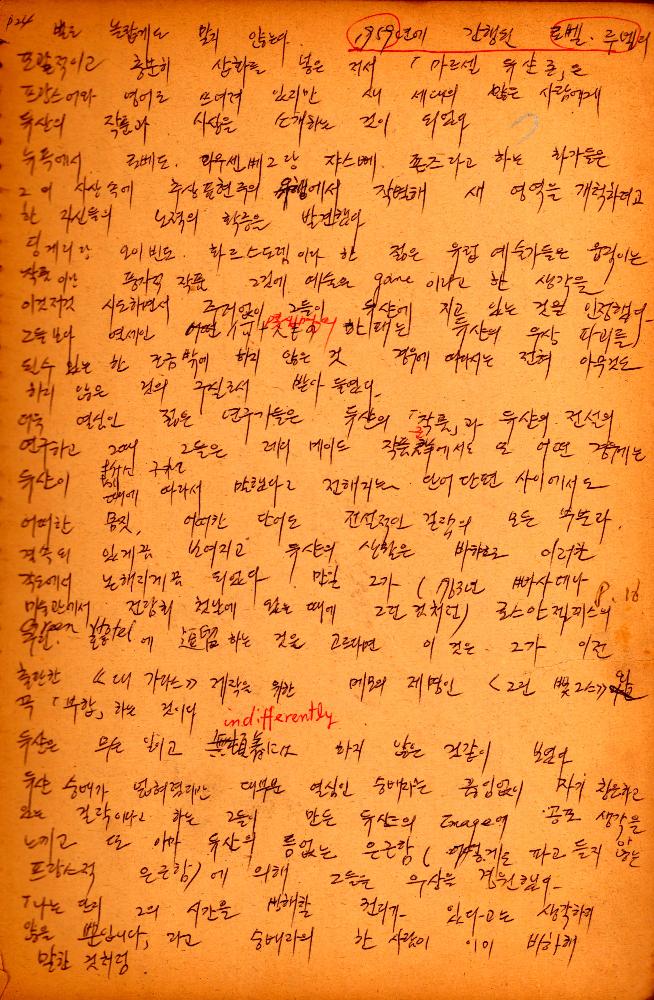 P24
별로 놀랍게도 말이 않는다. 1959년에 간행된 로벨. 루벨의
포괄적이고 충분히 삽화를 넣은 저서 「마르셀 뒤샹론」은
프랑스어와 영어로 쓰여져 있지만 새 세대의 많은 사람에게
뒤샹의 작품과 사상을 소개하는 것이 되었다
뉴욕에서 로베르. 라우센베그랑 쟈스퍼. 존즈라고 하는 화가들은
그의 사상속에 추상표현주의 에서 작별해 새 영역을 개척하려고
한 자신들의 노력의 확증을 발견했다
팅게리랑 오이빈드. 파르스도렘이나 한 젊은 유럽 예술가들은 움직이는
작품이란 풍자적 작품 그것에 예술은 game 이라고 한 생각을
이것저것 시도하면서 주저없이 그들이 뒤샹에 지고 있는 것을 인정했다.
그들보다 연세인 어떤 한테는 뒤샹의 우상 파괴를
될수 있는 한 조금밖에 하지 않은 것 경우에 따라서는 전혀 아무것도
하지 않은 것의 구실로서 받아들였다.
더욱 열심인 젊은 연구가들은 뒤샹의 「작품」과 뒤샹의 전선의
연구하고 그때 그들은 레디 메이드 작품 에서도 또 어떤 경우에는
뒤샹이 때에 따라서 말했다고 전해지는 단어 단편 사이에서도
어떠한 몸짓, 어떠한 단어도 전선적인 걸작의 모든 부분과.
결속되 있게끔 보여지고 뒤샹의 생활은 바하흐로 이러한
각도에서 논해지게끔 되었다 만일 그가 (1963년 빠사데나 P. 18
미술관에서 전람회 첫날에 있는 때에 그런 것처럼) 로스안젤러스의
Green 호텔 에 하는 것을 고른다면 이것은 그가 이전
출간한 《대 가라스》 제작을 위한 메모의 제명인 <그린 뽁스>와는
꼭 「부합」하는 것이다 indifferently
뒤샹은 무슨 일이고 無頓着으로 하지 않은 것같이 보였다
뒤샹 숭배가 대부분 열심인 숭배자는 끊임없이 자기 창조하고
있는 걸작이라고 하는 그들이 만든 뒤샹의 Image에 공포 생각을
느끼고 또 아마 뒤샹의 틈없는 은근함( 어떻게도 파고 들지 않는
프랑스적 은근함)에 의해 그들은 우상을 경원했다.
「나는 단지 그의 시간을 방해할 권리가 있다고는 생각하지
않을 뿐입니다」라고 숭배자의 한 사람이 이어 비하해
말한 것처럼